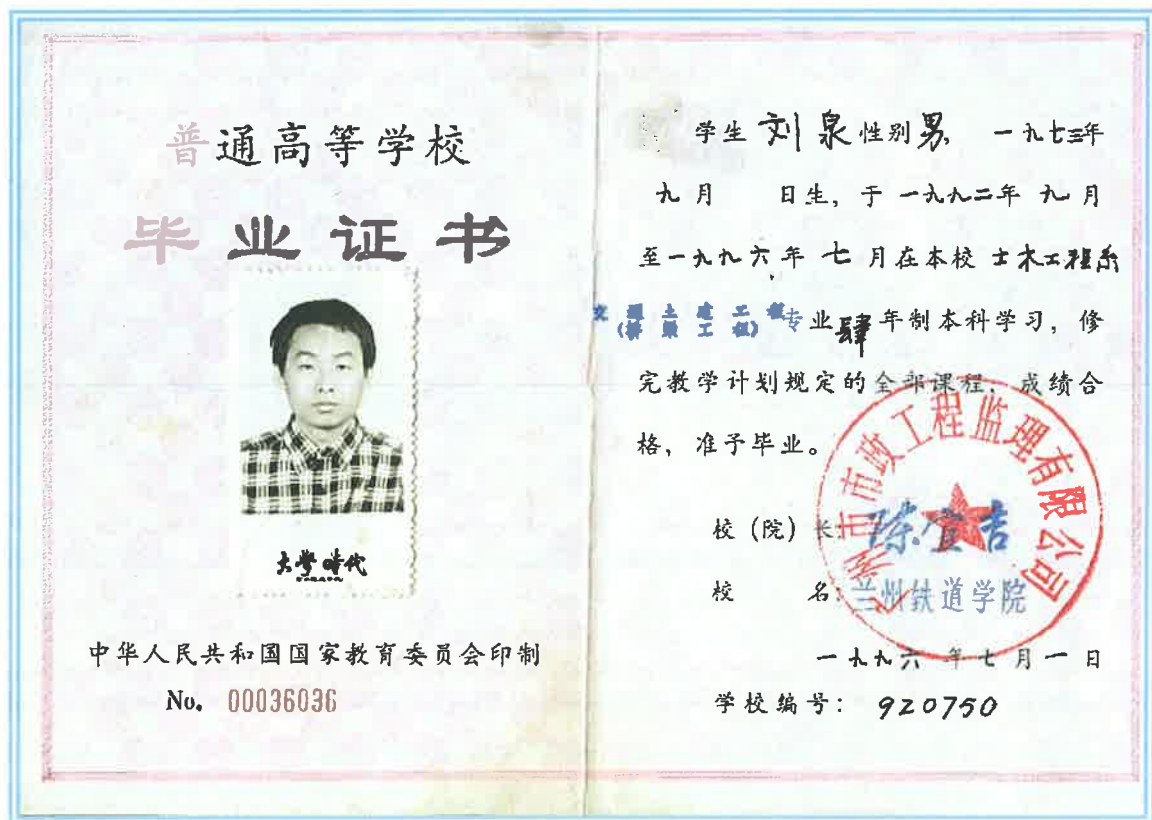 普通高等学校
毕业证书
大學時代
中华人民共和国国家教育委员会印制
No. 00036036
学生 刘泉 性别 男, 一九七三年
九月 日生, 于一九九二年 九月
至一九九六年 七月在本校 土木工程系
交通土建工程
(桥梁工程)
专业肆年制本科学习, 修
完教学计划规定的全部课程, 成绩合
格, 准予毕业。
校(院)长: 陈宜吉
校 名: 兰州铁道学院
一九九六年七月一日
学校编号: 920750
兰州市市政工程监理有限公司